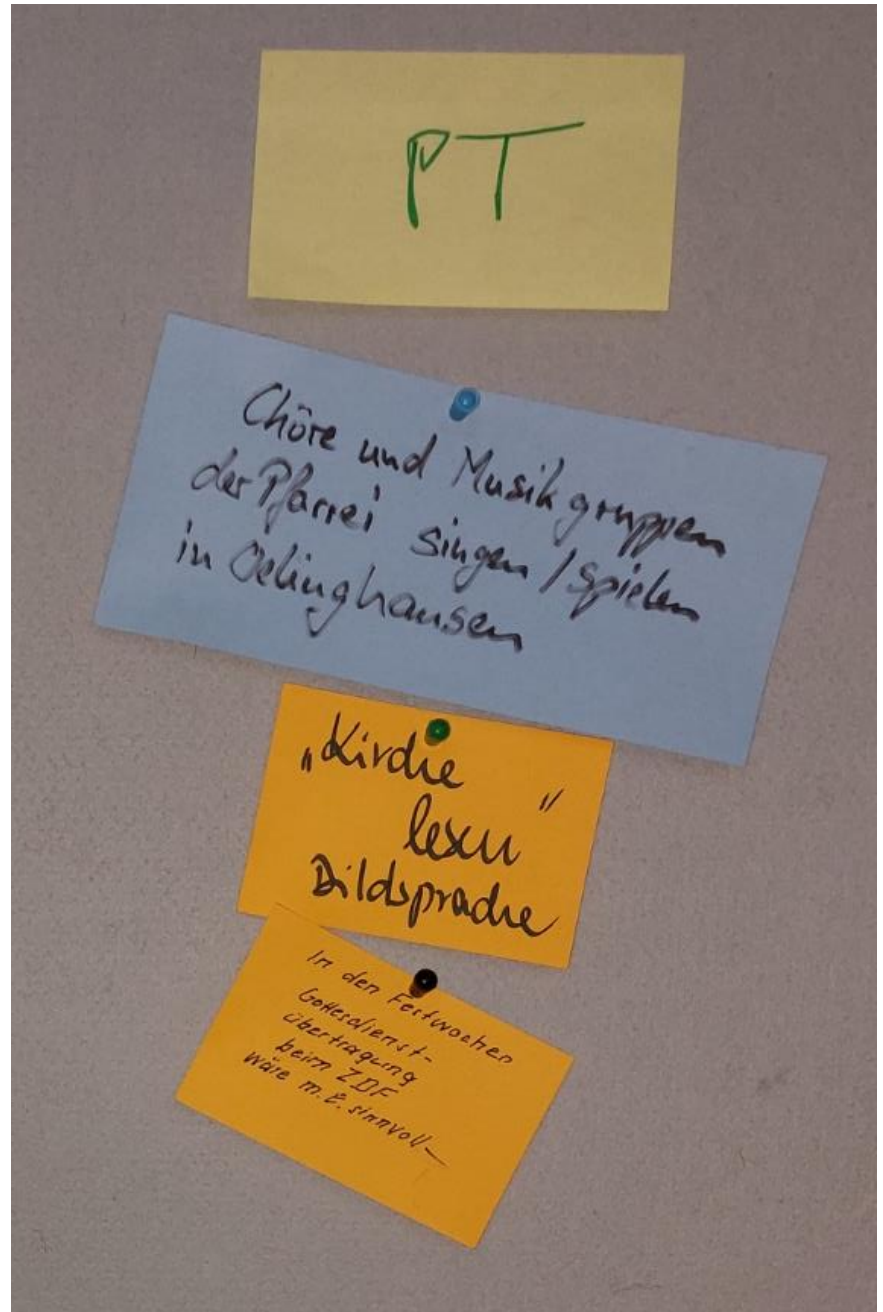 PT
Chöre und Musikgruppen
der Pfarrei singen / spielen
in Oelinghausen
„Kirche
lesen"
Bildsprache
In den Festwochen
Gottesdienst-
übertragung
beim ZDF
wäre m.E. sinnvoll –